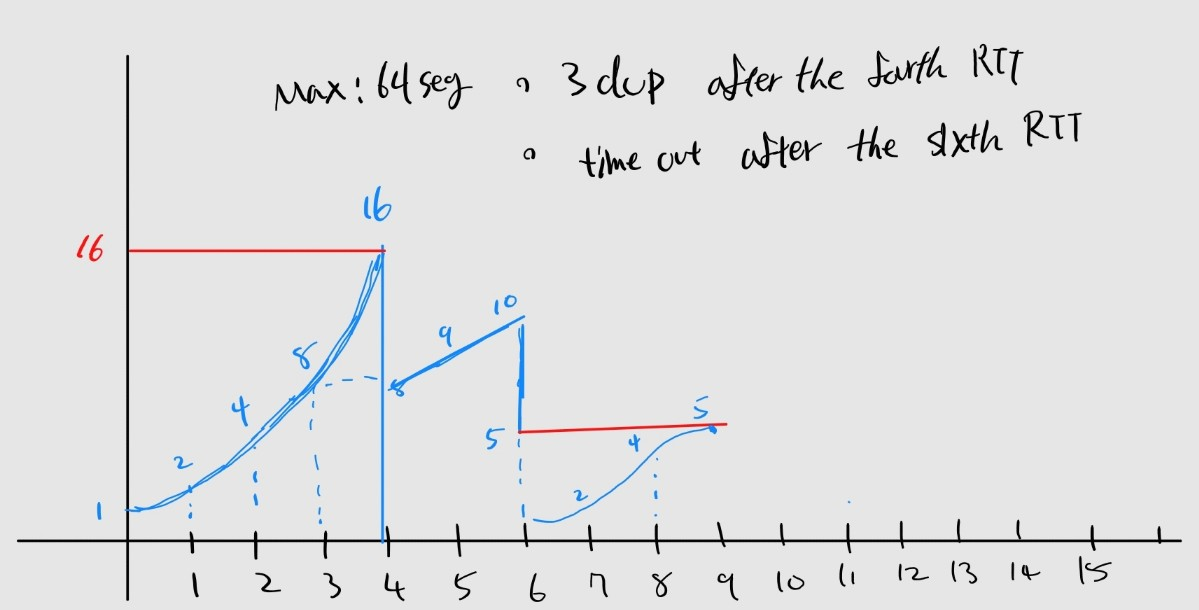 Max: 64 seg ∘ 3 dup after the forth RTT
∘ time out after the sixth RTT
16
16
10
9
8
8
5
5
4
4
2
2
1
1
1 2 3 4 5 6 7 8 9 10 11 12 13 14 15